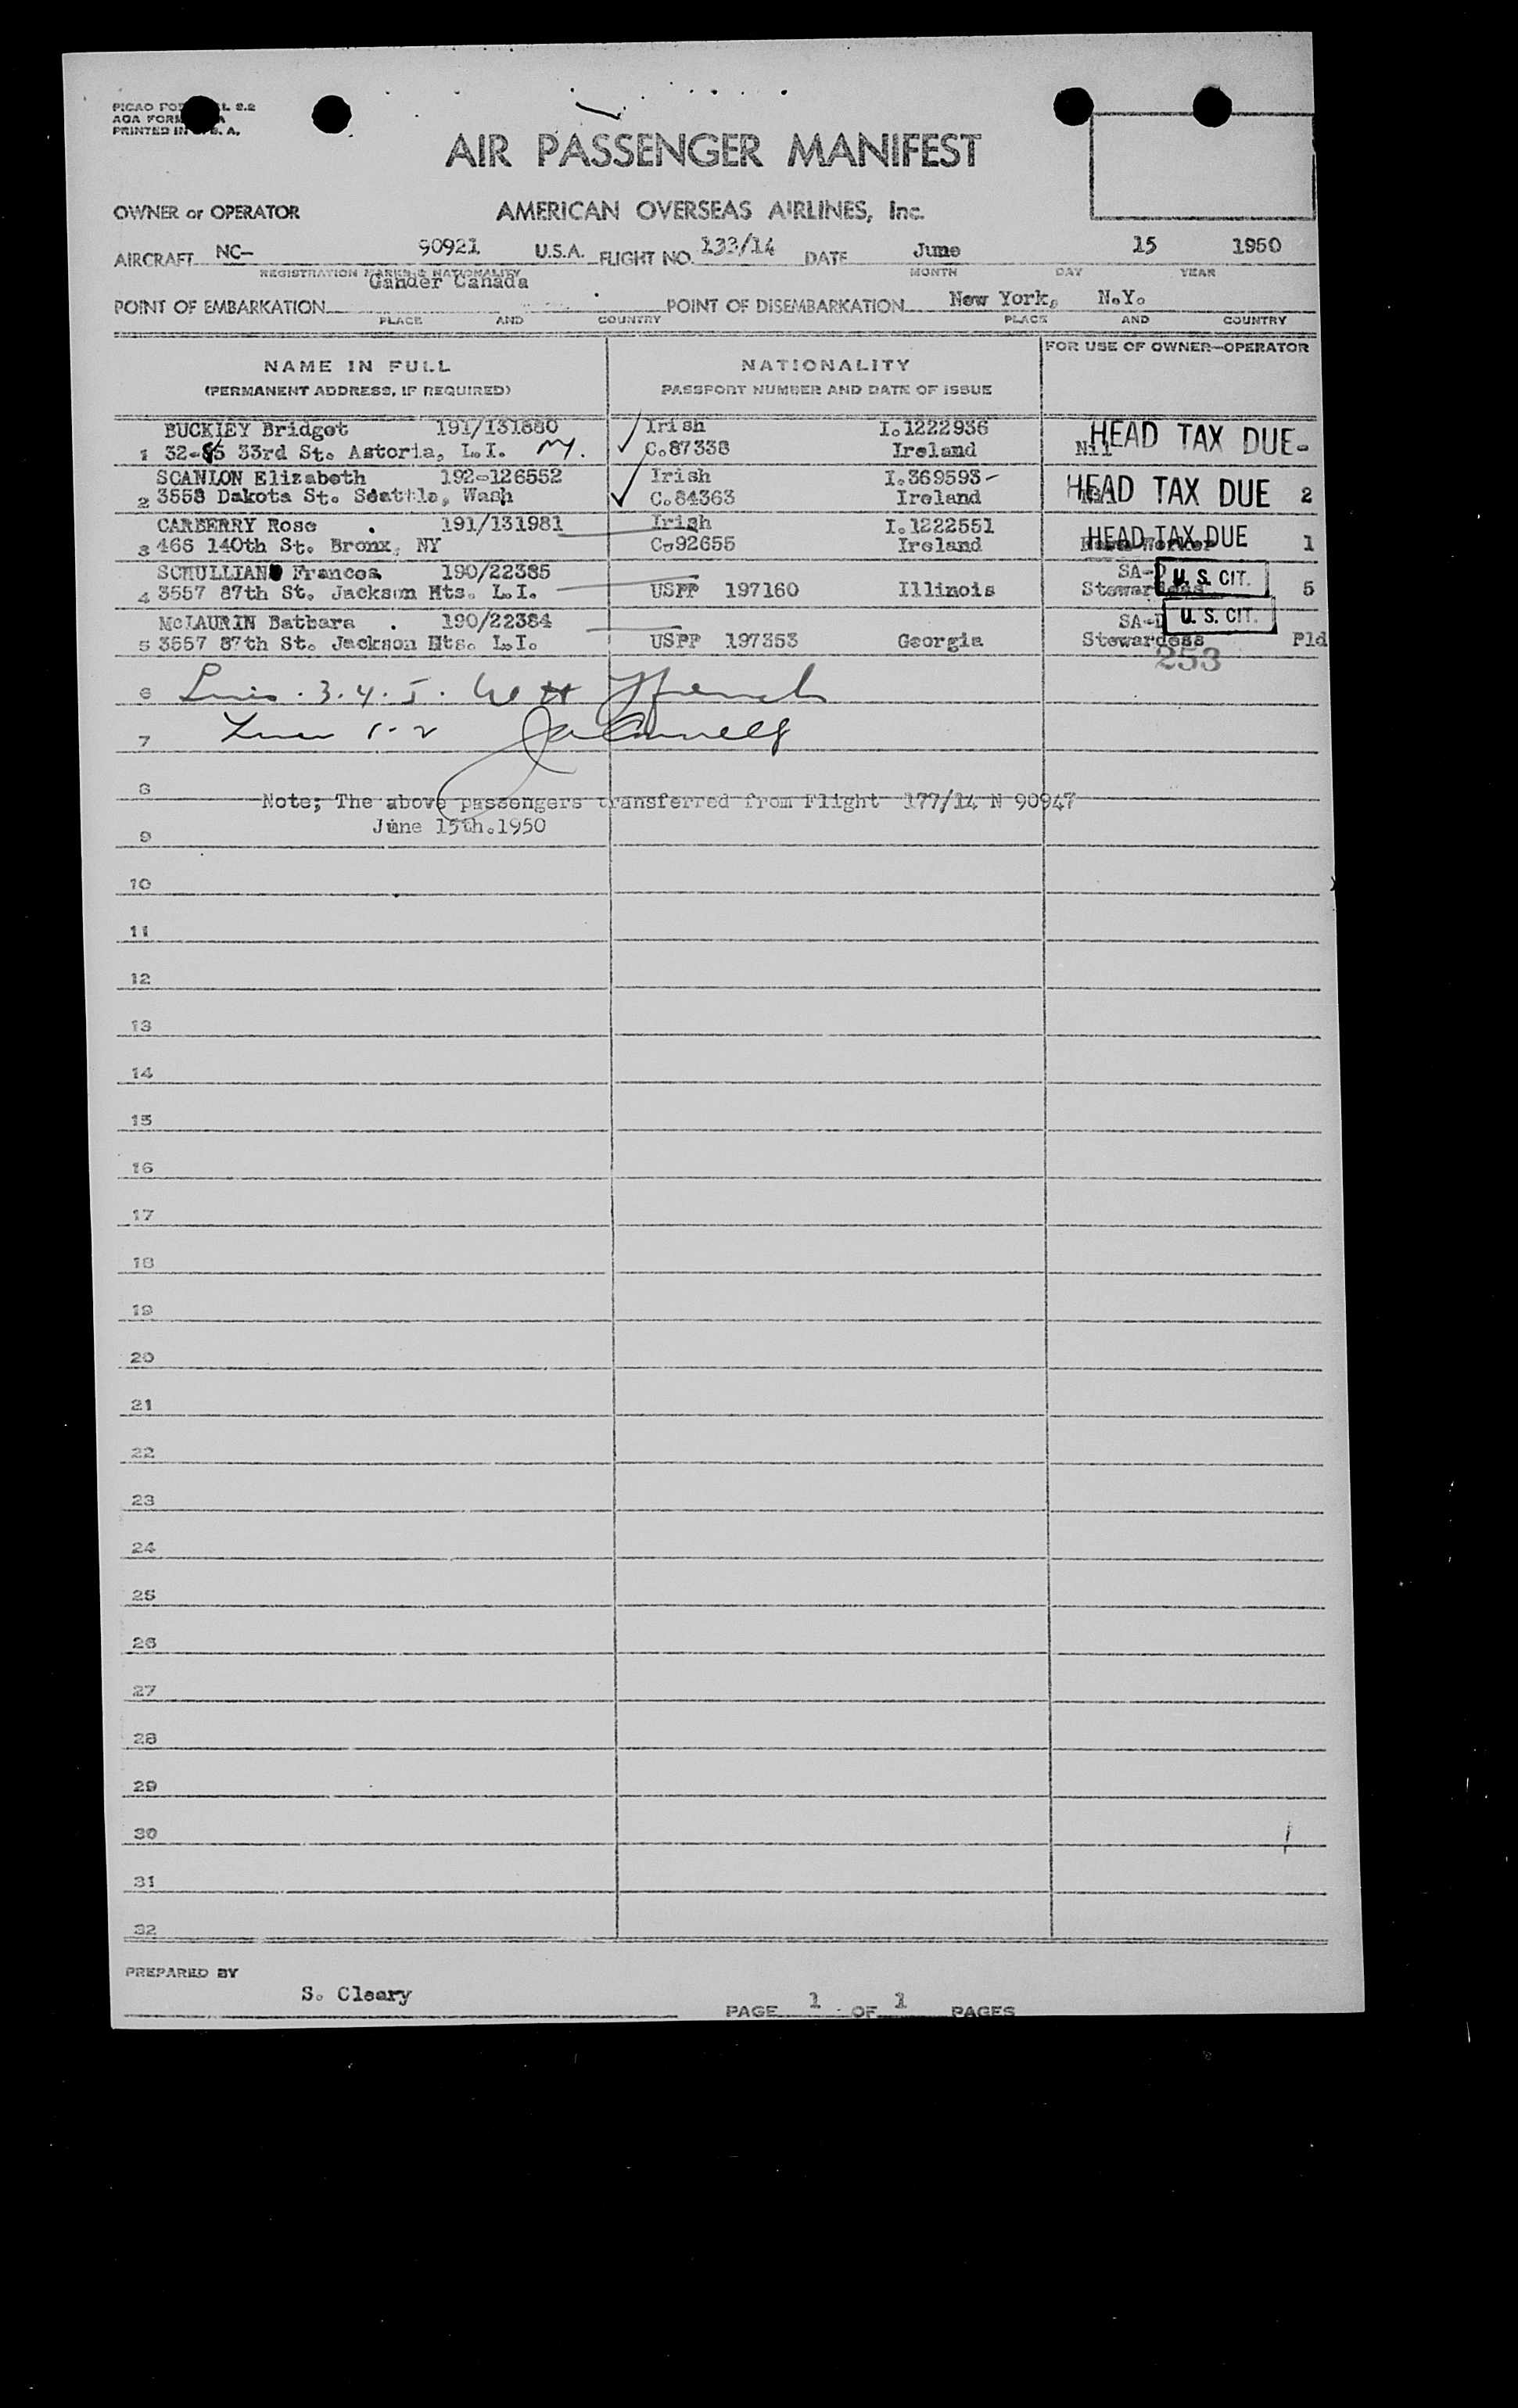 AIR PASSENGER MANIFEST
OWNER or OPERATOR AMERICAN OVERSEAS AIRLINES, Inc.
AIRCRAFT NC- 90921 U.S.A. FLIGHT NO. 133/14 DATE June 15 1950
REGISTRATION MARKS & NATIONALITY MONTH DAY YEAR
Gander Canada
POINT OF EMBARKATION POINT OF DISEMBARKATION New York, N.Y.
PLACE AND COUNTRY PLACE AND COUNTRY
NAME IN FULL NATIONALITY FOR USE OF OWNER-OPERATOR
(PERMANENT ADDRESS, IF REQUIRED) PASSPORT NUMBER AND DATE OF ISSUE
BUCKLEY Bridget 191/131880 Irish I.1222936 HEAD TAX DUE-
1 32-85 33rd St. Astoria, L.I. NY. C.87338 Ireland Nil
SCANLON Elizabeth 192-126552 Irish I.369593-
2 3558 Dakota St. Seattle, Wash C.84363 Ireland HEAD TAX DUE 2
CARBERRY Rose . 191/131981 Irish I.1222551
3 466 140th St. Bronx, NY C.92655 Ireland HEAD TAX DUE 1
SCHULLIAN Frances 190/22385 SA-D U. S. CIT.
4 3557 87th St. Jackson Hts. L.I. USPP 197160 Illinois Stewardess 5
McLAURIN Batbara . 190/22384 SA-D U. S. CIT.
5 3557 87th St. Jackson Hts. L.I. USPP 197353 Georgia Stewardess Pld
253
6 3.4.5.
7 1-2
8 Note; The above passengers transferred from Flight 177/14 N 90947
9 June 15th.1950
10
11
12
13
14
15
16
17
18
19
20
21
22
23
24
25
26
27
28
29
30
31
32
PREPARED BY
S. Cleary
PAGE 1 OF 1 PAGES